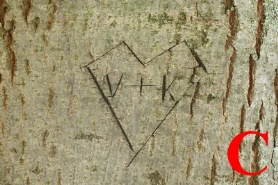 V + K
C